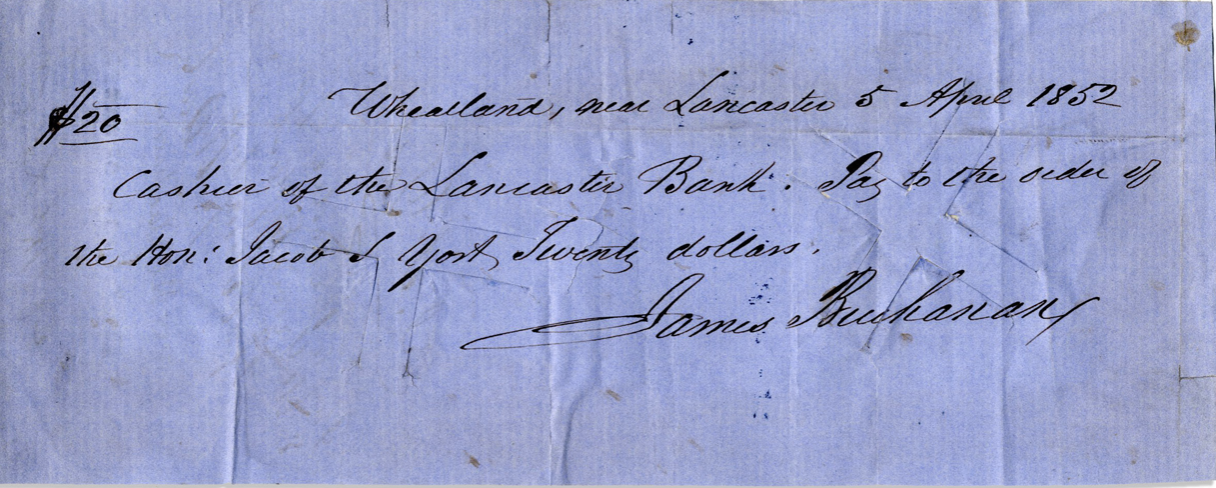 $20
Wheatland, near Lancaster 5 April 1852
Cashier of the Lancaster Bank. Pay to the order of
the Hon: Jacob S Yost, Twenty dollars.
James Buchanan